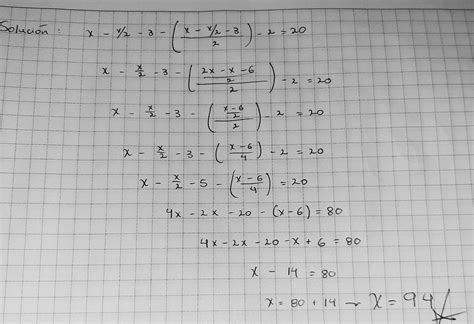 Solución: x - x/2 - 3 - ((x - x/2 - 3)/2) - 2 = 20
x - x/2 - 3 - (((2x - x - 6)/2)/2) - 2 = 20
x - x/2 - 3 - (((x - 6)/2)/2) - 2 = 20
x - x/2 - 3 - ((x - 6)/4) - 2 = 20
x - x/2 - 5 - ((x - 6)/4) = 20
4x - 2x - 20 - (x - 6) = 80
4x - 2x - 20 - x + 6 = 80
x - 14 = 80
x = 80 + 14 → x = 94